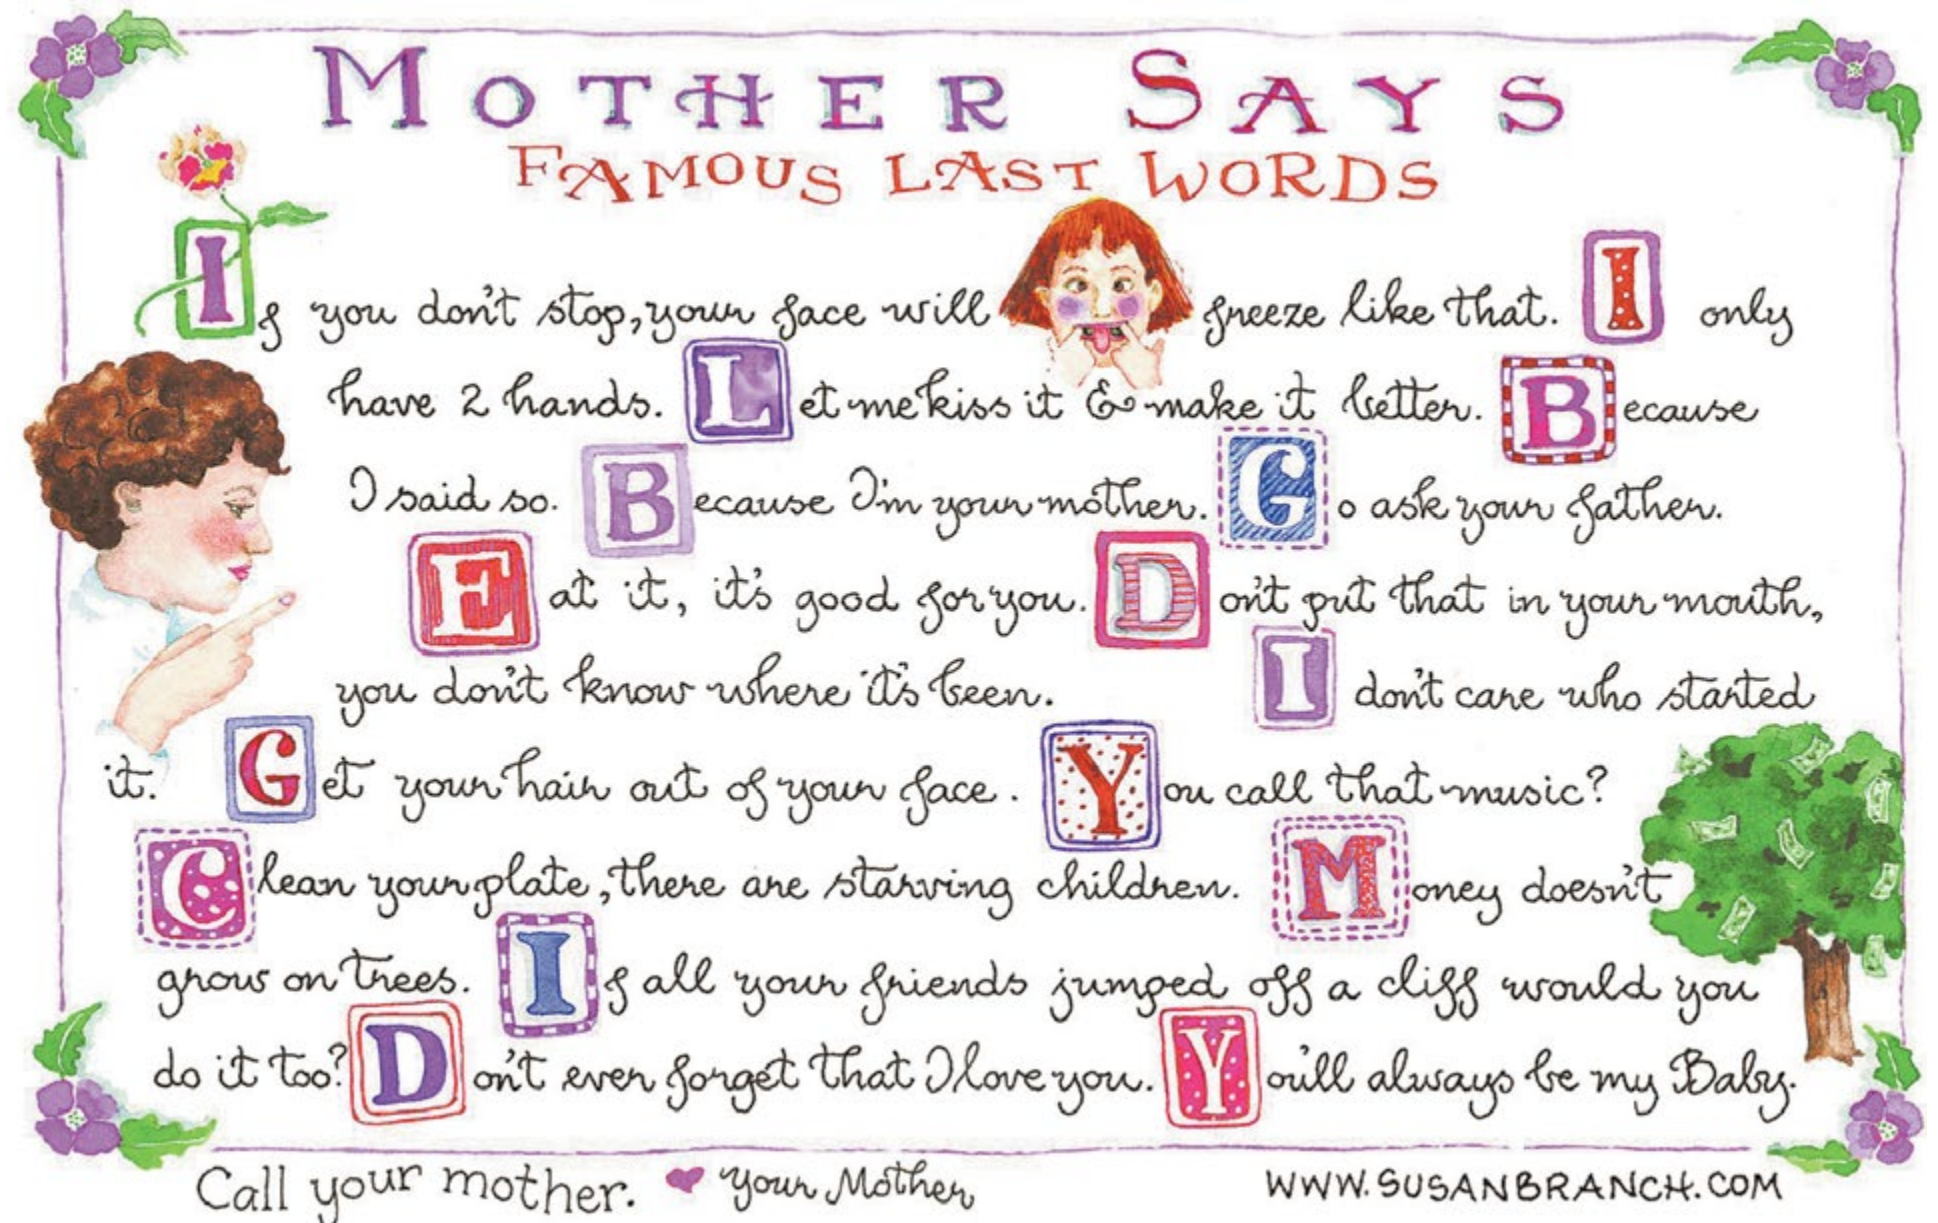 MOTHER SAYS
FAMOUS LAST WORDS
If you don't stop, your face will freeze like that. I only
have 2 hands. Let me kiss it & make it better. Because
I said so. Because I'm your mother. Go ask your father.
Eat it, it's good for you. Don't put that in your mouth,
you don't know where it's been. I don't care who started
it. Get your hair out of your face. You call that music?
Clean your plate, there are starving children. Money doesn't
grow on trees. If all your friends jumped off a cliff would you
do it too? Don't ever forget that I love you. You'll always be my Baby.
Call your mother. ♥ your Mother
WWW.SUSANBRANCH.COM